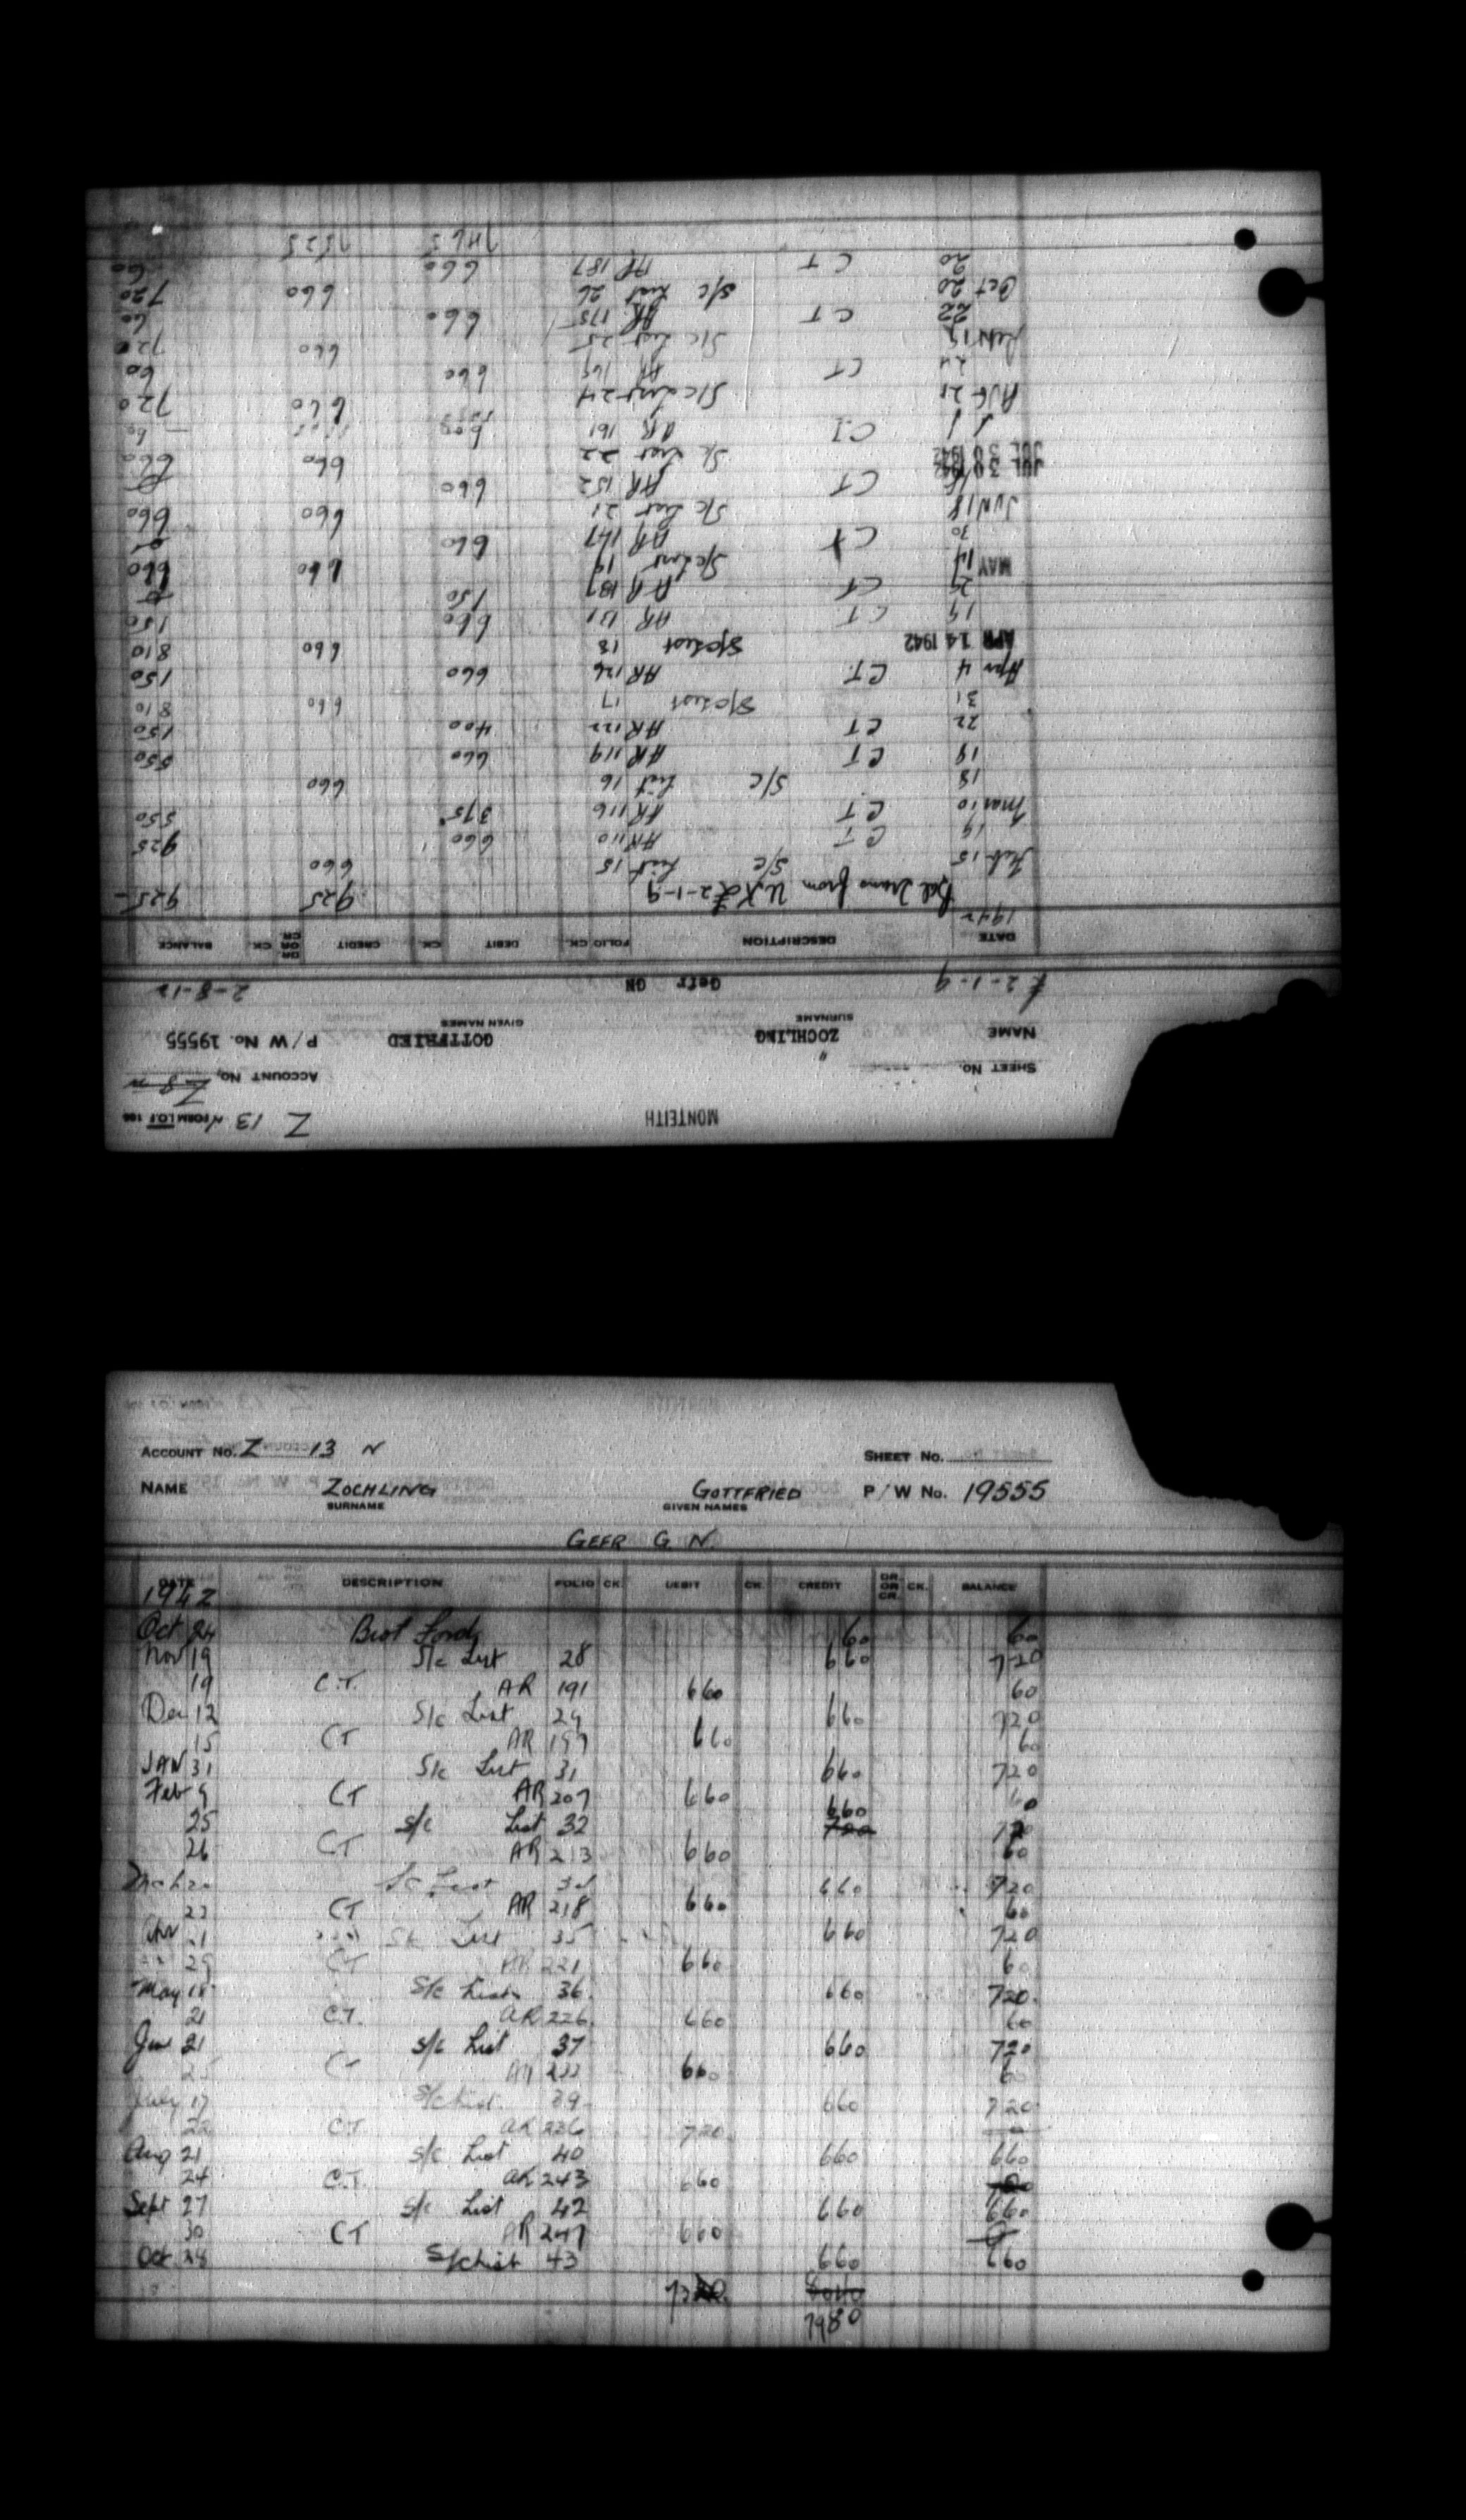 MONTEITH
Z 13 N FORM I.O.F 106
SHEET No. ACCOUNT No.
NAME ZOCHLING GOTTFRIED P/W No. 19555
SURNAME GIVEN NAMES
£2-1-9 Gefr GN 2-8-12
DATE DESCRIPTION FOLIO CK. DEBIT CK. CREDIT DR. OR CR. CK. BALANCE
1942
Bal Trans from U.K £2-1-9 925 925
Feb 15 S/c List 15 660
19 CT AR 110 660 925
Mar 10 CT AR 116 375 550
18 S/c List 16 660
19 CT AR 119 660 550
22 CT AR 122 400 150
31 S/c List 17 660 810
Apr 4 CT. AR 126 660 150
APR 14 1942 S/c List 18 660 810
19 CT AR 131 660 150
29 CT AR 137 150
MAY 14 S/c List 19 660 660
30 CT AR 147 660
JUN 18 S/c List 21 660 660
CT AR 152 660
JUL 30 1942 S/c List 22 660 660
C.T. AR 161 60
AUG 21 S/c List 24 660 720
24 CT AR 169 660 60
19 S/c List 25 660 720
22 CT AR 175 660 60
Oct 20 S/c List 26 660 720
20 CT AR 187 660 60
7465 7525
ACCOUNT No. Z 13 N SHEET No.
NAME ZOCHLING GOTTFRIED P/W No. 19555
SURNAME GIVEN NAMES
GEFR G. N.
DATE DESCRIPTION FOLIO CK. DEBIT CK. CREDIT DR. OR CR. CK. BALANCE
1942
Oct 24 Brot Ford 60 60
Nov 19 S/c List 28 660 720
19 C.T. AR 191 660 60
Dec 12 S/c List 29 660 720
15 CT AR 197 660 60
JAN 31 S/c List 31 660 720
Feb 9 CT AR 207 660 60
25 S/c List 32 660 720
26 CT AR 213 660 60
March 20 S/c List 660 720
22 CT AR 218 660 60
Apr 21 S/c List 35 660 720
29 CT AR 221 660 60
May 18 S/c List 36 660 720
21 C.T. AR 226 660 60
Jun 21 S/c List 37 660 720
25 CT AR 660 60
July 17 S/c List 39 660 720
22 CT AR 236 720
Aug 21 S/c List 40 660 660
24 C.T. AR 243 660
Sept 27 S/c List 42 660 660
30 CT AR 247 660
Oct 28 S/c List 43 660 660
7980